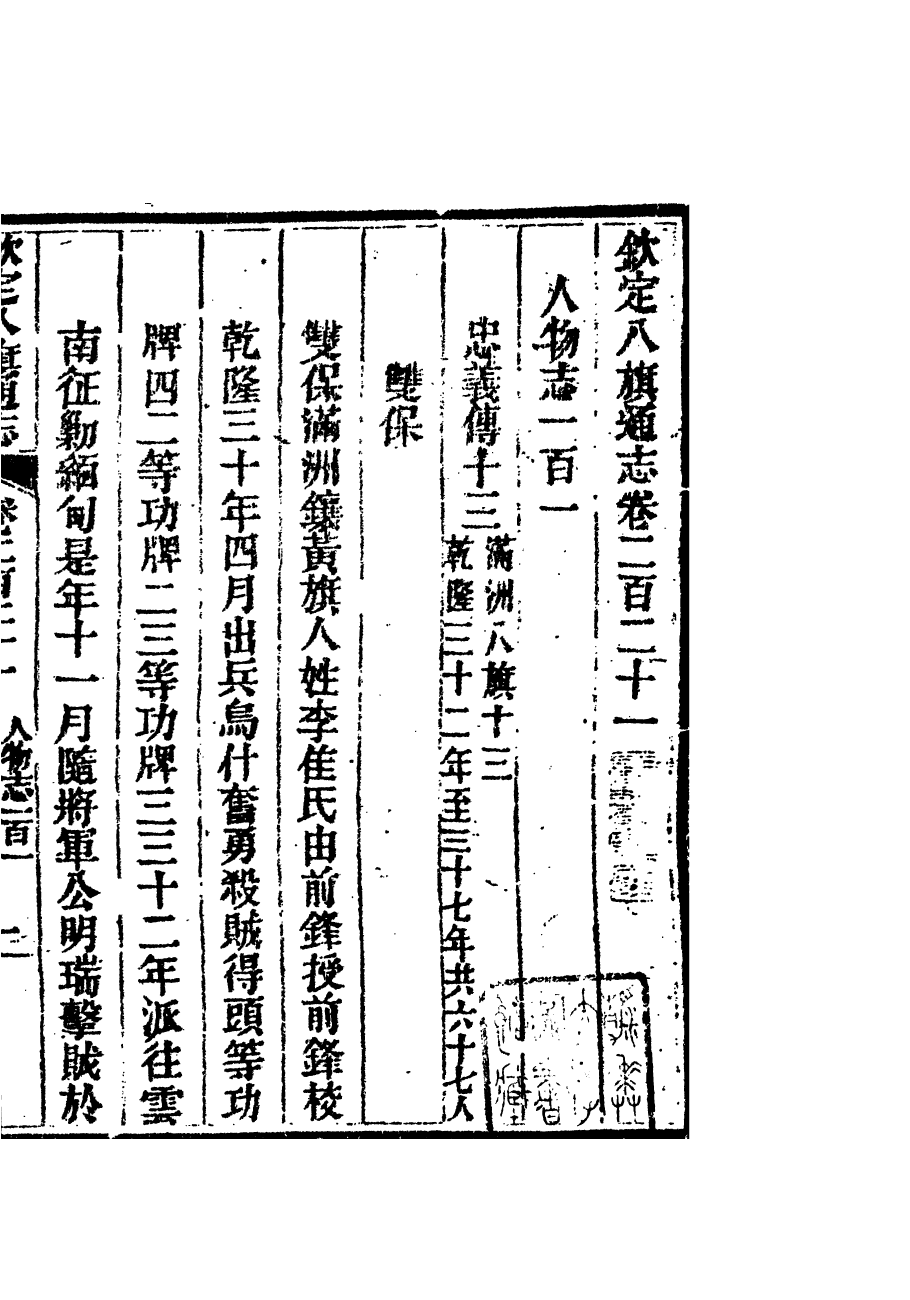 欽定八旗通志卷二百二十一
人物志一百一
忠義傳十三
滿洲八旗十三
乾隆三十二年至三十七年共六十七人
雙保
雙保滿洲鑲黃旗人姓李佳氏由前鋒授前鋒校
乾隆三十年四月出兵烏什奮勇殺賊得頭等功
牌四二等功牌二三等功牌三三十二年派往雲
南征勦緬甸是年十一月隨將軍公明瑞擊賊於
欽定八旗通志 卷二百二十一 人物志一百一 一